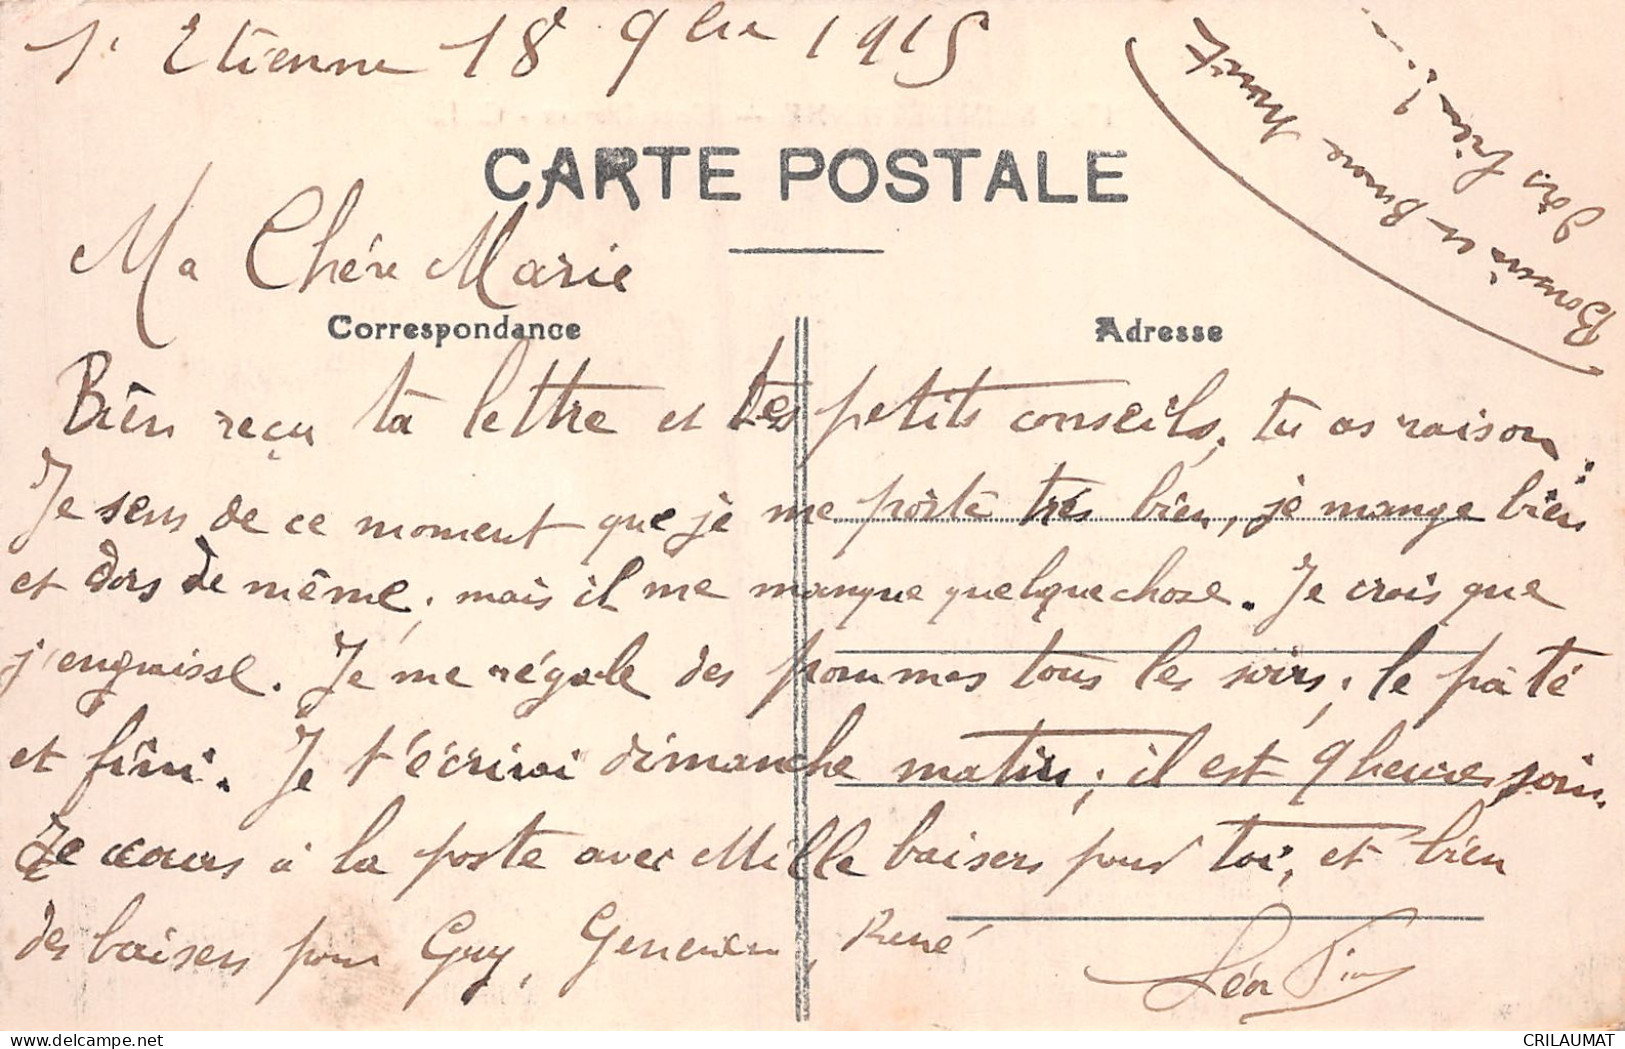 St Etienne 18 9bre 1915
CARTE POSTALE
Ma Chére Marie
Correspondance
Adresse
Bien reçu ta lettre et tes petits conseils, tu as raison.
Je sens de ce moment que je me porte trés bien, je mange bien
et dors de même, mais il me manque quelquechose. Je crois que
j'engraisse. Je me régale des pommes tous les soirs, le pâté
et fini. Je t'écrirai dimanche matin, il est 9 heures
Je cours à la poste avec Mille baisers pour toi, et bien
des baisers pour Guy, Genevieve, René
Léon
Bonsoir et Bonne Nuit
Dors bien !...
CRILAUMAT